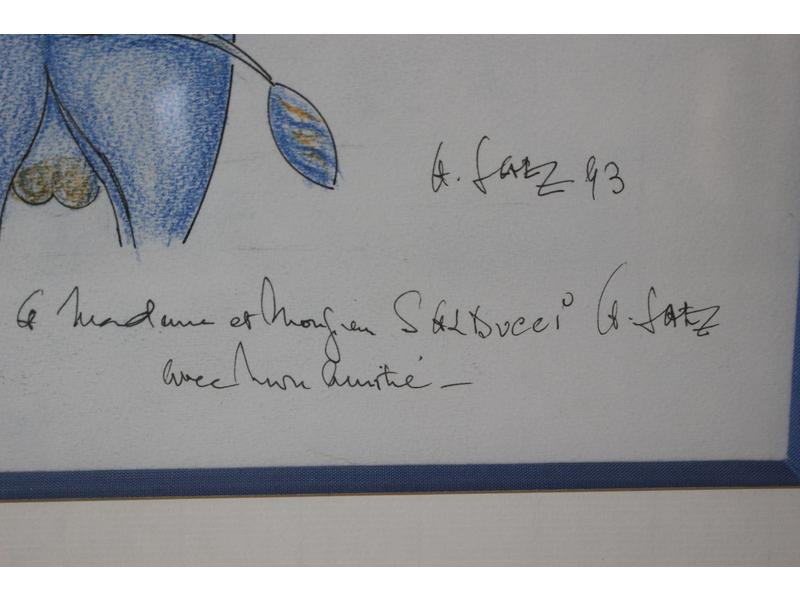 G. SAEZ 93
A Madame et Monsieur SALDUCCI G. SAEZ
avec mon amitié